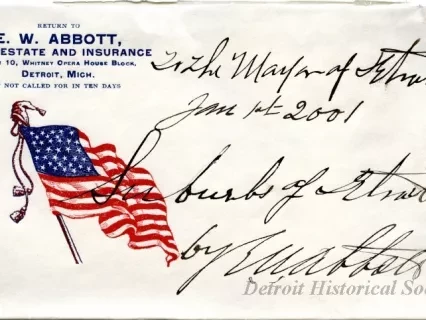 RETURN TO
E. W. ABBOTT,
ESTATE AND INSURANCE
10, WHITNEY OPERA HOUSE BLOCK,
DETROIT, MICH.
NOT CALLED FOR IN TEN DAYS
To The Mayor of Detroi
Jan 1st 2001
Suburbs of Detroi
by E W Abbott
Detroit Historical Soc